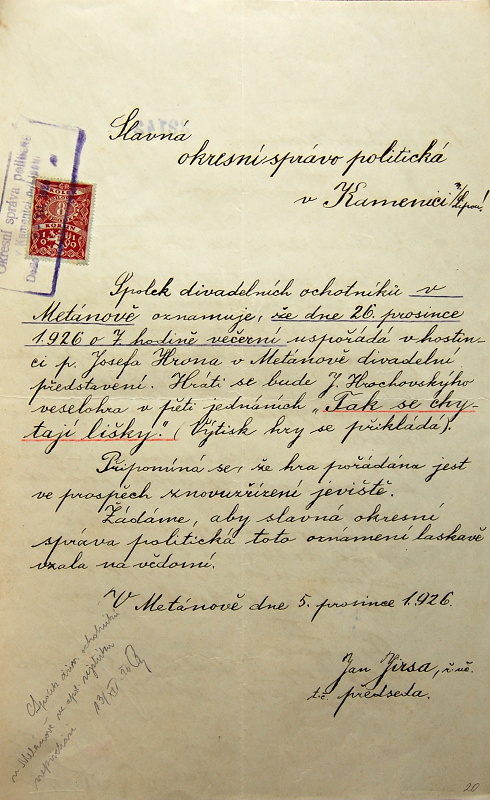 Slavná
okresní správo politická
v Kamenici n/Lipou!
Okresní správa politická
8
KORUN
Spolek divadelních ochotníků v
Metánově oznamuje, že dne 26. prosince
1926 o 7. hodině večerní uspořádá v hostin-
ci p. Josefa Hrona v Metánově divadelní
představení. Hráti se bude J. Hrochovskýho
veselohra v pěti jednáních „Tak se chy-
tají lišky." (Výtisk hry se přikládá).
Připomíná se, že hra pořádána jest
ve prospěch znovuzřízení jeviště.
Žádáme, aby slavná okresní
správa politická toto oznámení laskavě
vzala na vědomí.
V Metánově dne 5. prosince 1926.
Jan Jirsa, ř. uč.
t. č. předseda.
Spolek div. ochotníků
v Metánově
20